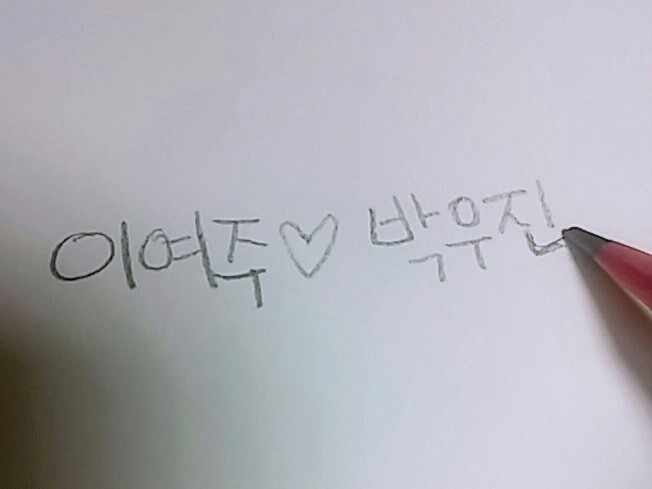 이여주♡박우진